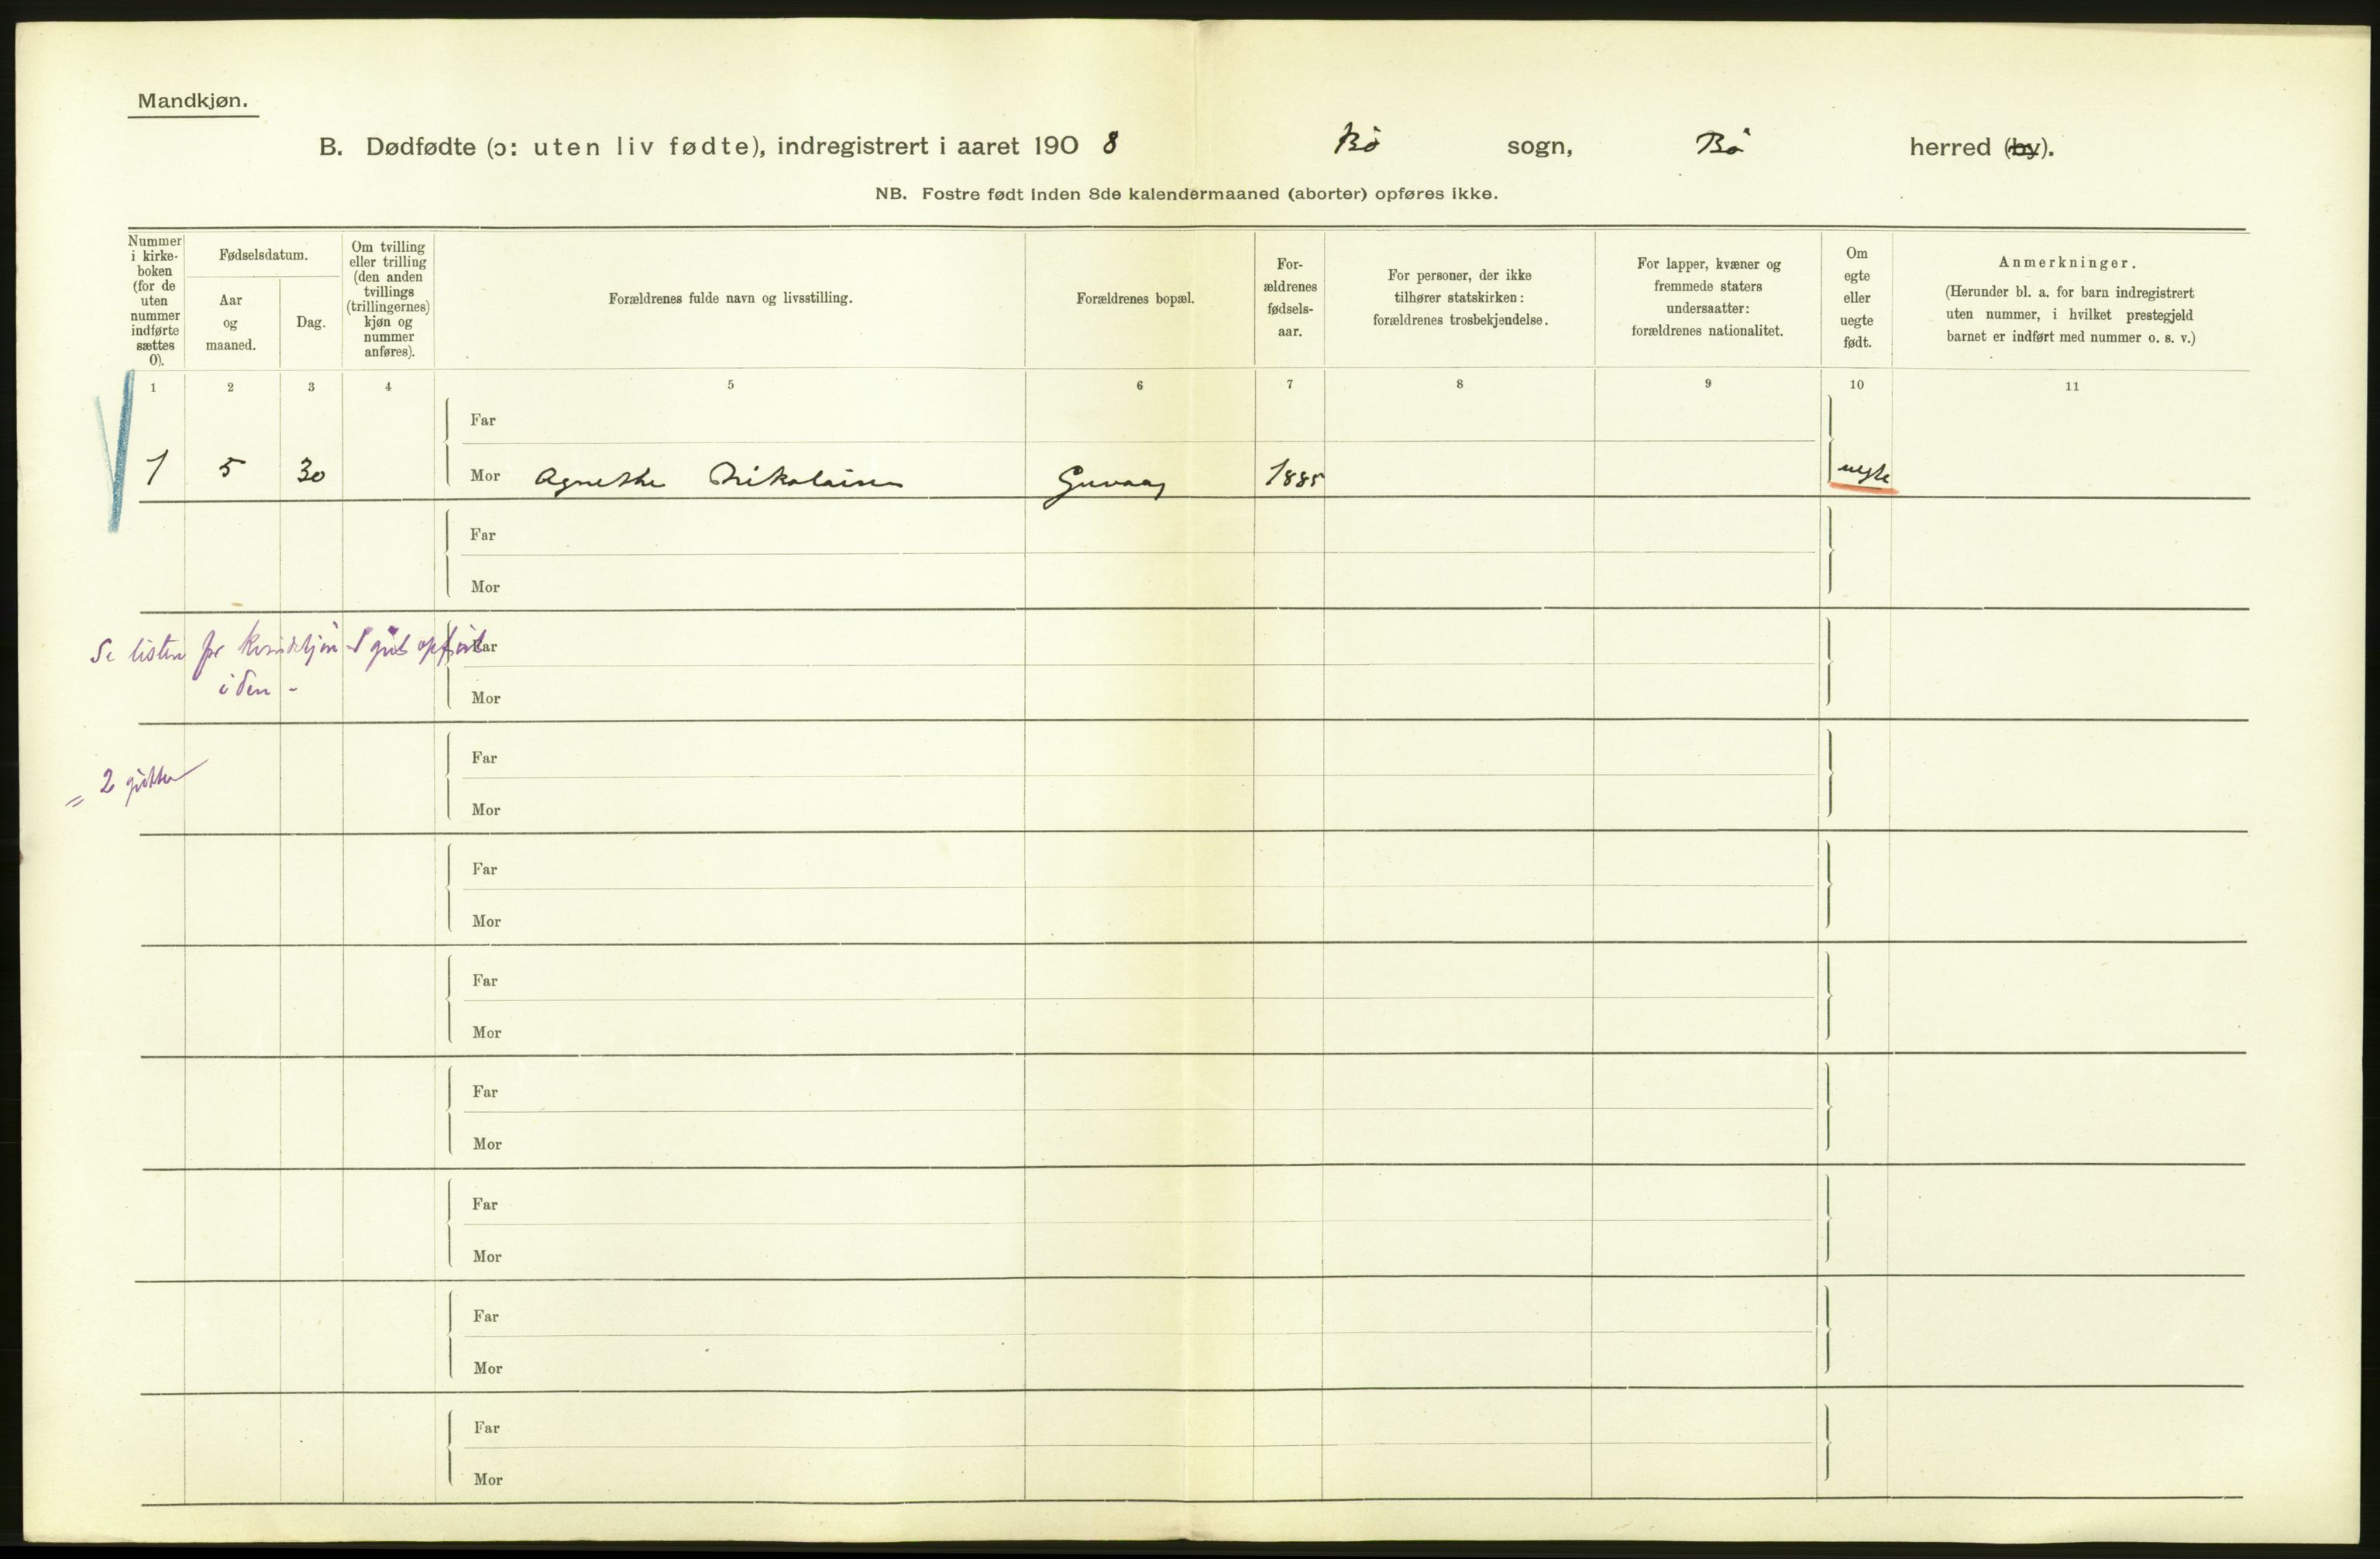 Mandkjøn.
B. Dødfødte (ɔ: uten liv fødte), indregistrert i aaret 1908 Bø sogn, Bø herred (by).
NB. Fostre født inden 8de kalendermaaned (aborter) opføres ikke.
Nummer
i kirke-
boken
(for de
uten
nummer
indførte
sættes
0).
Fødselsdatum.
Aar
og
maaned.
Dag.
Om tvilling
eller trilling
(den anden
tvillings
(trillingernes)
kjøn og
nummer
anføres).
Forældrenes fulde navn og livsstilling.
Forældrenes bopæl.
For-
ældrenes
fødsels-
aar.
For personer, der ikke
tilhører statskirken:
forældrenes trosbekjendelse.
For lapper, kvæner og
fremmede staters
undersaatter:
forældrenes nationalitet.
Om
egte
eller
uegte
født.
Anmerkninger.
(Herunder bl. a. for barn indregistrert
uten nummer, i hvilket prestegjeld
barnet er indført med nummer o. s. v.)
1 2 3 4 5 6 7 8 9 10 11
Far
1 5 30 Mor Agnethe Nikolaisen Guvaag 1885 uegte
Far
Mor
Se listen for kvindekjøn 1 gut opført
Far
i den -
Mor
Far
= 2 gutter
Mor
Far
Mor
Far
Mor
Far
Mor
Far
Mor
Far
Mor
Far
Mor